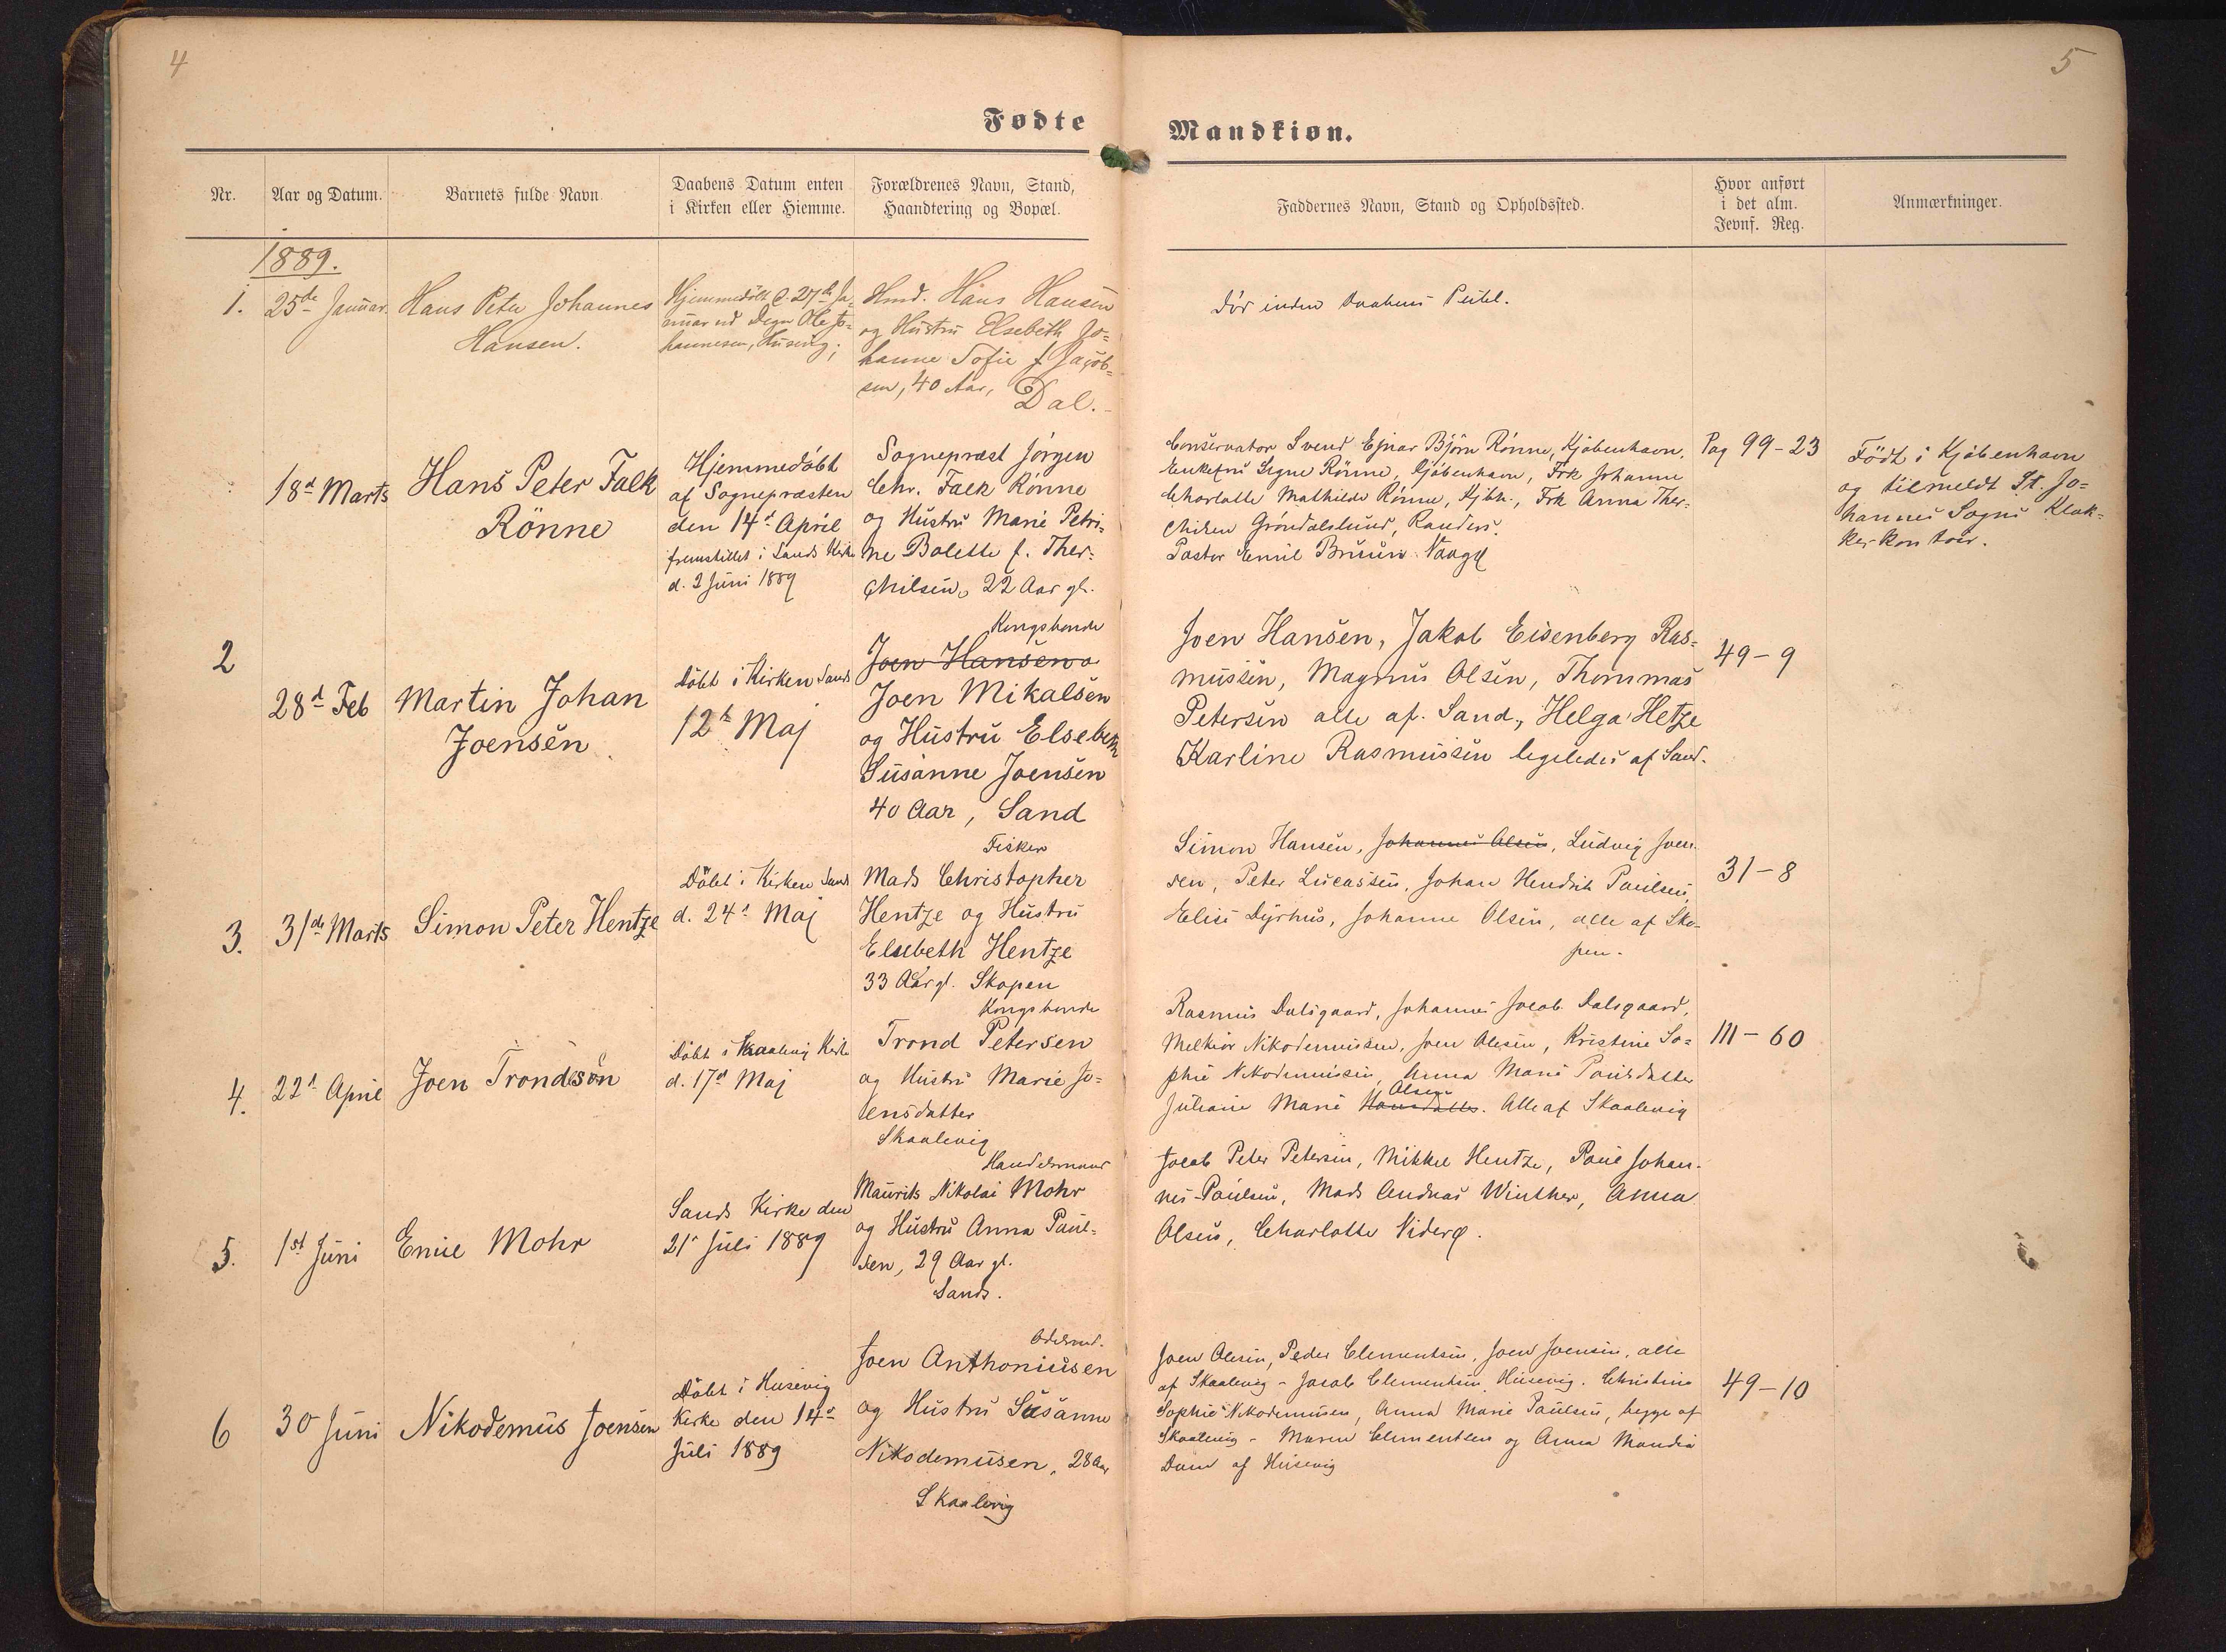 4
5
Fødte
Mandkiøn.
Nr.
Aar og Datum.
Barnets fulde Navn
Daabens Datum enten
i Kirken eller Hiemme.
Forældrenes Navn, Stand,
Haandtering og Bopæl.
Faddernes Navn, Stand og Opholdssted.
Hvor anført
i det alm.
Jevnf. Reg.
Anmærkninger.
1889.
1.
25de Januar.
Hans Peter Johannes
Hansen.
Hjemmedöbt d. 27de Ja-
nuar ved Degn Ole Jo-
hannesen, Husevig;
Hmd. Hans Hansen
og Hustru Elsebeth Jo-
hanne Sofie f Jacob-
sen, 40 Aar, Dal.
död inden Daabens Publ.
18d Marts
Hans Peter Falk
Rönne
Hjemmedöbt
af Sognepræsten
den 14d April
fremstillet i Sands Kirke
d. 2 Juni 1889
Sognepræst Jörgen
Chr. Falk Rönne
og Hustru Marie Petri-
ne Bolette f. Ther-
chilsen, 22 Aar gl.
Conservator Svend Ejnar Björn Rönne, Kjöbenhavn.
Enkefru Signe Rönne, Kjöbenhavn, Frk Johanne
Charlotte Mathilde Rönne, Kjbh., Frk Anna Ther-
childsen Gröndalslund, Randers.
Pastor Emil Bruun Vaagø
Pag 99-23
Födt i Kjöbenhavn
og tilmeldt St. Jo-
hannes Sogns Klok-
kerkontoir.
2
28d Feb
Martin Johan
Joensen
Döbt i Kirken Sands
12t Maj
Kongsbonde
Joen Hansen o
Joen Mikalsen
og Hustru Elsebeth
Susanne Joensen
40 Aar, Sand
Joen Hansen, Jakob Eisenberg Ras-
mussen, Magnus Olsen, Thommas
Petersen alle af. Sand., Helga Hetze
Karline Rasmussen legeledes af Sand.
49-9
3.
31de Marts
Simon Peter Hentze
Döbt i Kirken Sand
d. 24d Maj
Fisker
Mads Christopher
Hentze og Hustru
Elsebeth Hentze
33 Aar gl. Skopen
Simon Hansen, Johannes Olsen, Ludvig Joen-
sen, Peter Lucassen, Johan Hendrik Poulsen,
Elise Dyrhus, Johanne Olsen, alle af Sko-
pen.
31-8
4.
22d April
Joen Trondsön
Döbt i Skaalevig Kirke
d. 17d Maj
Kongsbonde
Trond Petersen
og Hustru Marie Jo-
ensdatter
Skaalevig
Rasmus Dalsgaard, Johannes Jocob Dalsgaard,
Melkior Nikodemussen, Joen Olesen, Kristine So-
phie Nikodemussen, Anna Marie Poulsdatter
Olsen
Juliane Marie Hansdatter. Alle af Skaalevig
111-60
5.
1st Juni
Emil Mohr
Sands Kirke den
21d Juli 1889
Handelsmand
Maurits Nikolai Mohr
og Hustru Anna Paul-
sen, 29 Aar gl.
Sands.
Jocob Peter Petersen, Mikkel Hentze, Poul Johan-
nes Poulsen, Mads Andreas Winther, Anna
Olsen, Charlotte Viderø.
6
30 Juni
Nikodemus Joensen
Döbt i Husevig
Kirke den 14d
Juli 1889
Odelsmd.
Joen Anthoniusen
og Hustru Susanne
Nikodemusen, 28 Aar
Skaalevig
Joen Olesen, Peder Clementsen, Joen Joensen, alle
af Skaalevig - Jacob Clementsen, Husevig. Christine
Sophie Nikodemusen, Anna Marie Paulsen, begge af
Skaalevig - Maren Clementsen og Anna Mandia
Dam af Husevig
49-10